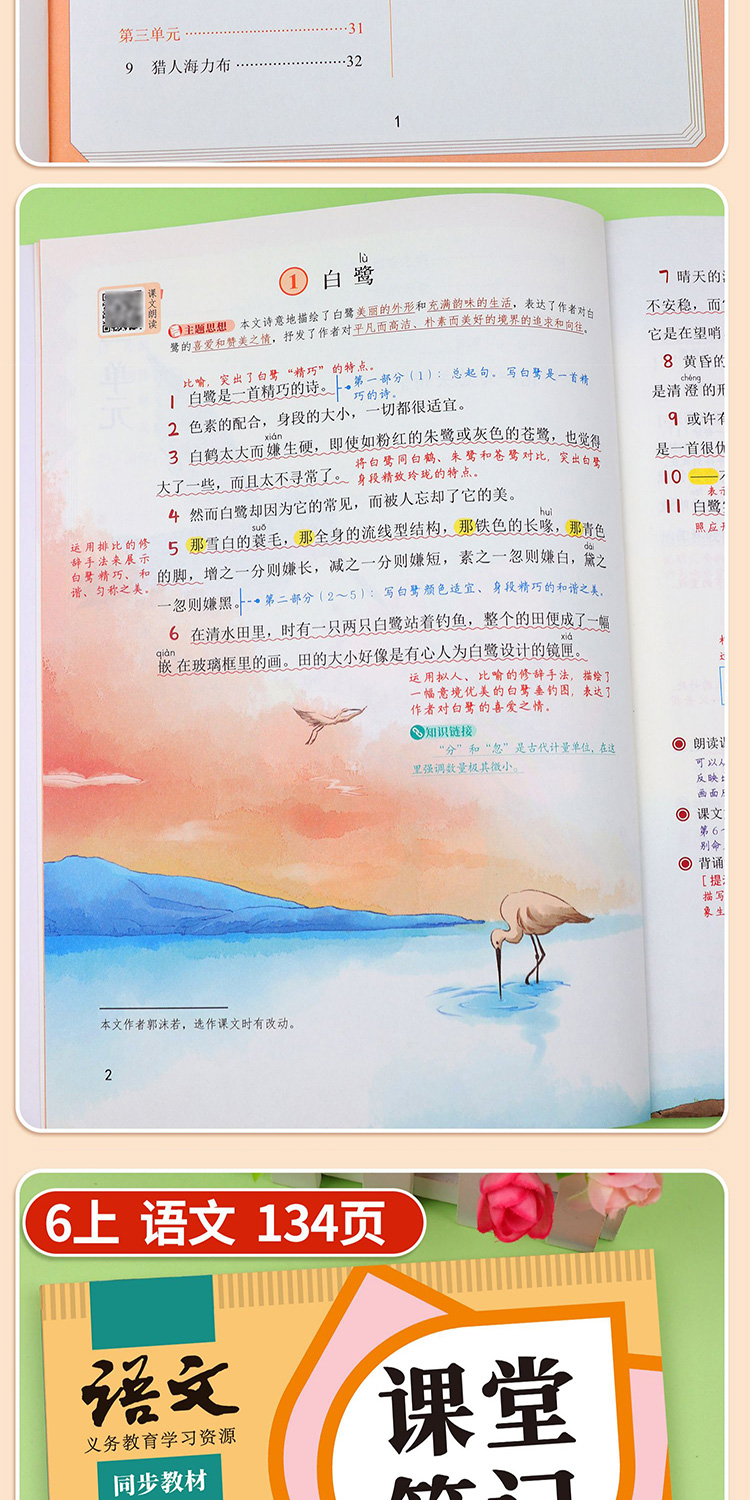 第三单元 31
9 猎人海力布 32
1
lù
1 白鹭
课文朗读
主题思想 本文诗意地描绘了白鹭美丽的外形和充满韵味的生活，表达了作者对白
鹭的喜爱和赞美之情，抒发了作者对平凡而高洁、朴素而美好的境界的追求和向往。
比喻，突出了白鹭“精巧”的特点。
1 白鹭是一首精巧的诗。
第一部分（1）：总起句。写白鹭是一首精
巧的诗。
2 色素的配合，身段的大小，一切都很适宜。
xián
3 白鹤太大而嫌生硬，即使如粉红的朱鹭或灰色的苍鹭，也觉得
大了一些，而且太不寻常了。
将白鹭同白鹤、朱鹭和苍鹭对比，突出白鹭
身段精致玲珑的特点。
4 然而白鹭却因为它的常见，而被人忘却了它的美。
suō huì
5 那雪白的蓑毛，那全身的流线型结构，那铁色的长喙，那青色
dài
的脚，增之一分则嫌长，减之一分则嫌短，素之一忽则嫌白，黛之
一忽则嫌黑。
第二部分（2～5）：写白鹭颜色适宜、身段精巧的和谐之美。
运用排比的修
辞手法来展示
白鹭精巧、和
谐、匀称之美。
6 在清水田里，时有一只两只白鹭站着钓鱼，整个的田便成了一幅
qiàn xiá
嵌在玻璃框里的画。田的大小好像是有心人为白鹭设计的镜匣。
运用拟人、比喻的修辞手法，描绘了
一幅意境优美的白鹭垂钓图，表达了
作者对白鹭的喜爱之情。
知识链接
“分”和“忽”是古代计量单位，在这
里强调数量极其微小。
本文作者郭沫若，选作课文时有改动。
2
7 晴天的
不安稳，而
它是在望哨
8 黄昏的
chéng
是清澄的形
9 或许有
是一首很优
10 ——
表示
11 白鹭
照应开
朗读课
可以从
反映
画面
课文
第6～
别命
背诵
［提示
描写
象生
6上 语文 134页
语文
义务教育学习资源
同步教材
课堂
笔记